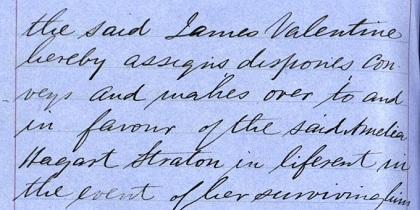 the said James Valentine
hereby assigns dispones con-
veys and makes over to and
in favour of the said Amelia
Hagart Straton in liferent in
the event of her surviving him